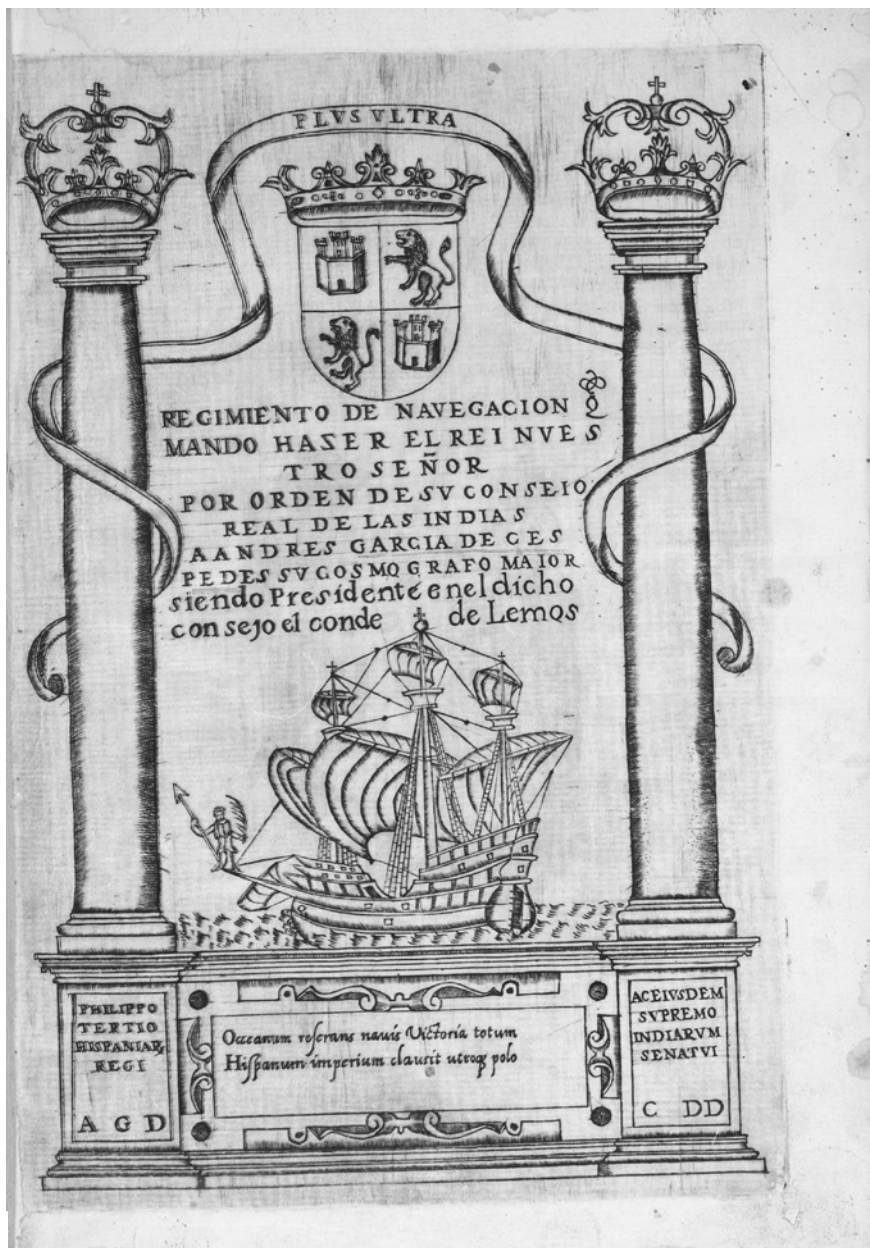 PLVS VLTRA
REGIMIENTO DE NAVEGACION Q̃
MANDO HASER EL REI NVES
TRO SEÑOR
POR ORDEN DE SV CONSEIO
REAL DE LAS INDIAS
A ANDRES GARCIA DE CES
PEDES SV COSMOGRAFO MAIOR
siendo Presidente enel dicho
consejo el conde de Lemos
PHILIPPO
TERTIO
HISPANIAR,
REGI
A G D
Occeanum reserans nauis Victoria totum
Hispanum imperium clausit utroqȝ polo
AC EIVSDEM
SVPREMO
INDIARVM
SENATVI
C DD